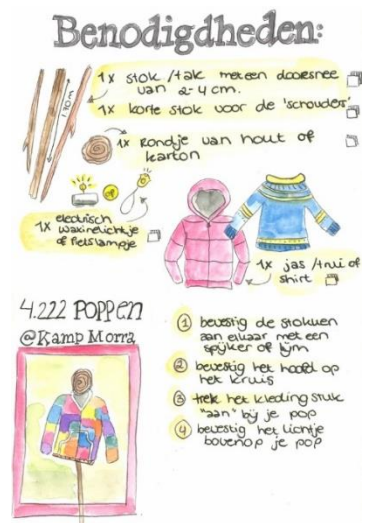 Benodigdheden:
1x stok /tak met een doorsnee
van 2-4 cm.
1x korte stok voor de 'schouders'
1x rondje van hout of
karton
1x electrisch
waxinelichtje
of fietslampje
1x jas /trui of
shirt
4.222 POPPEN
@Kamp Morra
1 bevestig de stokken
aan elkaar met een
spijker of lijm
2 bevestig het hoofd op
het kruis
3 trek het kleding stuk
"aan" bij je pop
4 bevestig het lichtje
bovenop je pop